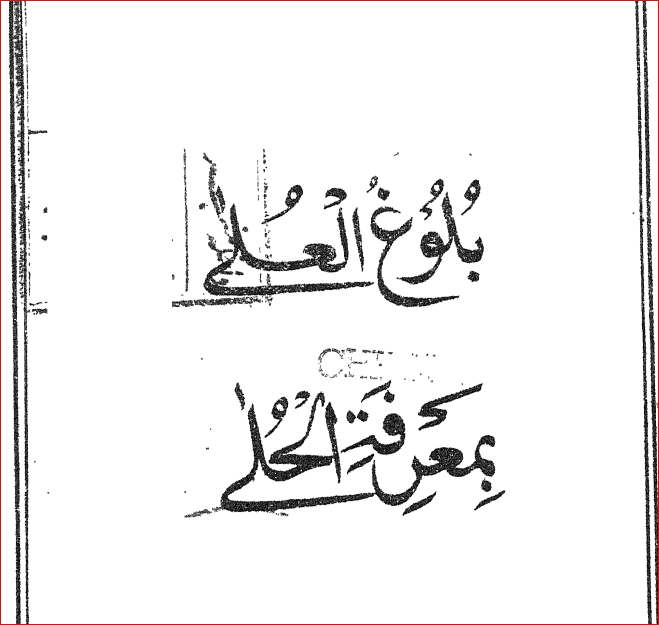 بُلُوْغُ الْعُلٰى
بِمَعْرِفَتِ الْحُلٰى